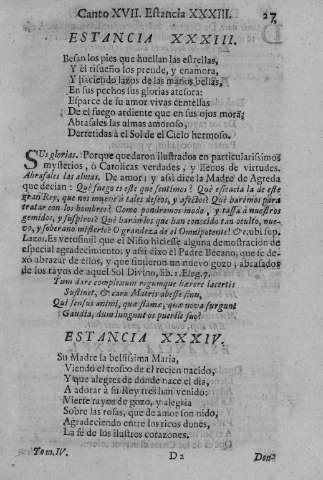 Canto XVII. Estancia XXXIII. 27
ESTANCIA XXXIII.
Besan los pies que huellan las estrellas,
Y el risueño los prende, y enamora,
Y haciendo lazos de las manos bellas,
En sus pechos sus glorias atesora:
Esparce de su amor vivas centellas
De el fuego ardiente que en sus ojos mora;
Abrasales las almas amoroso,
Derretidas à el Sol de el Cielo hermoso.
SUs glorias. Porque quedaron ilustrados en particularissimos
mysterios, ò Catolicas verdades, y llenos de virtudes.
Abrasales las almas. De amor; y assi dice la Madre de Agreda
que decian: Què fuego es este que sentimos? Què eficacia la de este
gran Rey, que nos mueve à tales deseos, y afectos? Què harèmos para
tratar con los hombres? Como pondrèmos modo, y tassa à nuestros
gemidos, y suspiros? Què haràn los que han conocido tan oculto, nue-
vo, y soberano misterio? O grandeza de el Omnipotente! &c. ubi sup.
Lazos. Es verosimil que el Niño hiciesse alguna demostracion de
especial agradecimiento; y assi dixo el Padre Becano, que se de-
xò abrazar de ellos, y que sintieron un nuevo gozo, abrasados
de los rayos de aquel Sol Divino, lib. 1. Eleg. 7.
Tum dare complexum regumque hærere lacertis
Sustinet, & cara Matris abesse sinu,
Qui sensus animi, quæ flamæ, quæ nova surgunt
Gaudia, dum iungunt os puerile suo?
ESTANCIA XXXIV.
Su Madre la bellissima Maria,
Viendo el trofeo de el recien nacido,
Y que alegres de donde nace el dia,
A adorar à su Rey tres han venido:
Vierte rayos de gozo, y alegria
Sobre las rosas, que de amor son nido,
Agradeciendo entre los ricos dones,
La fè de los ilustres corazones.
Tom. IV. D 2 Don-